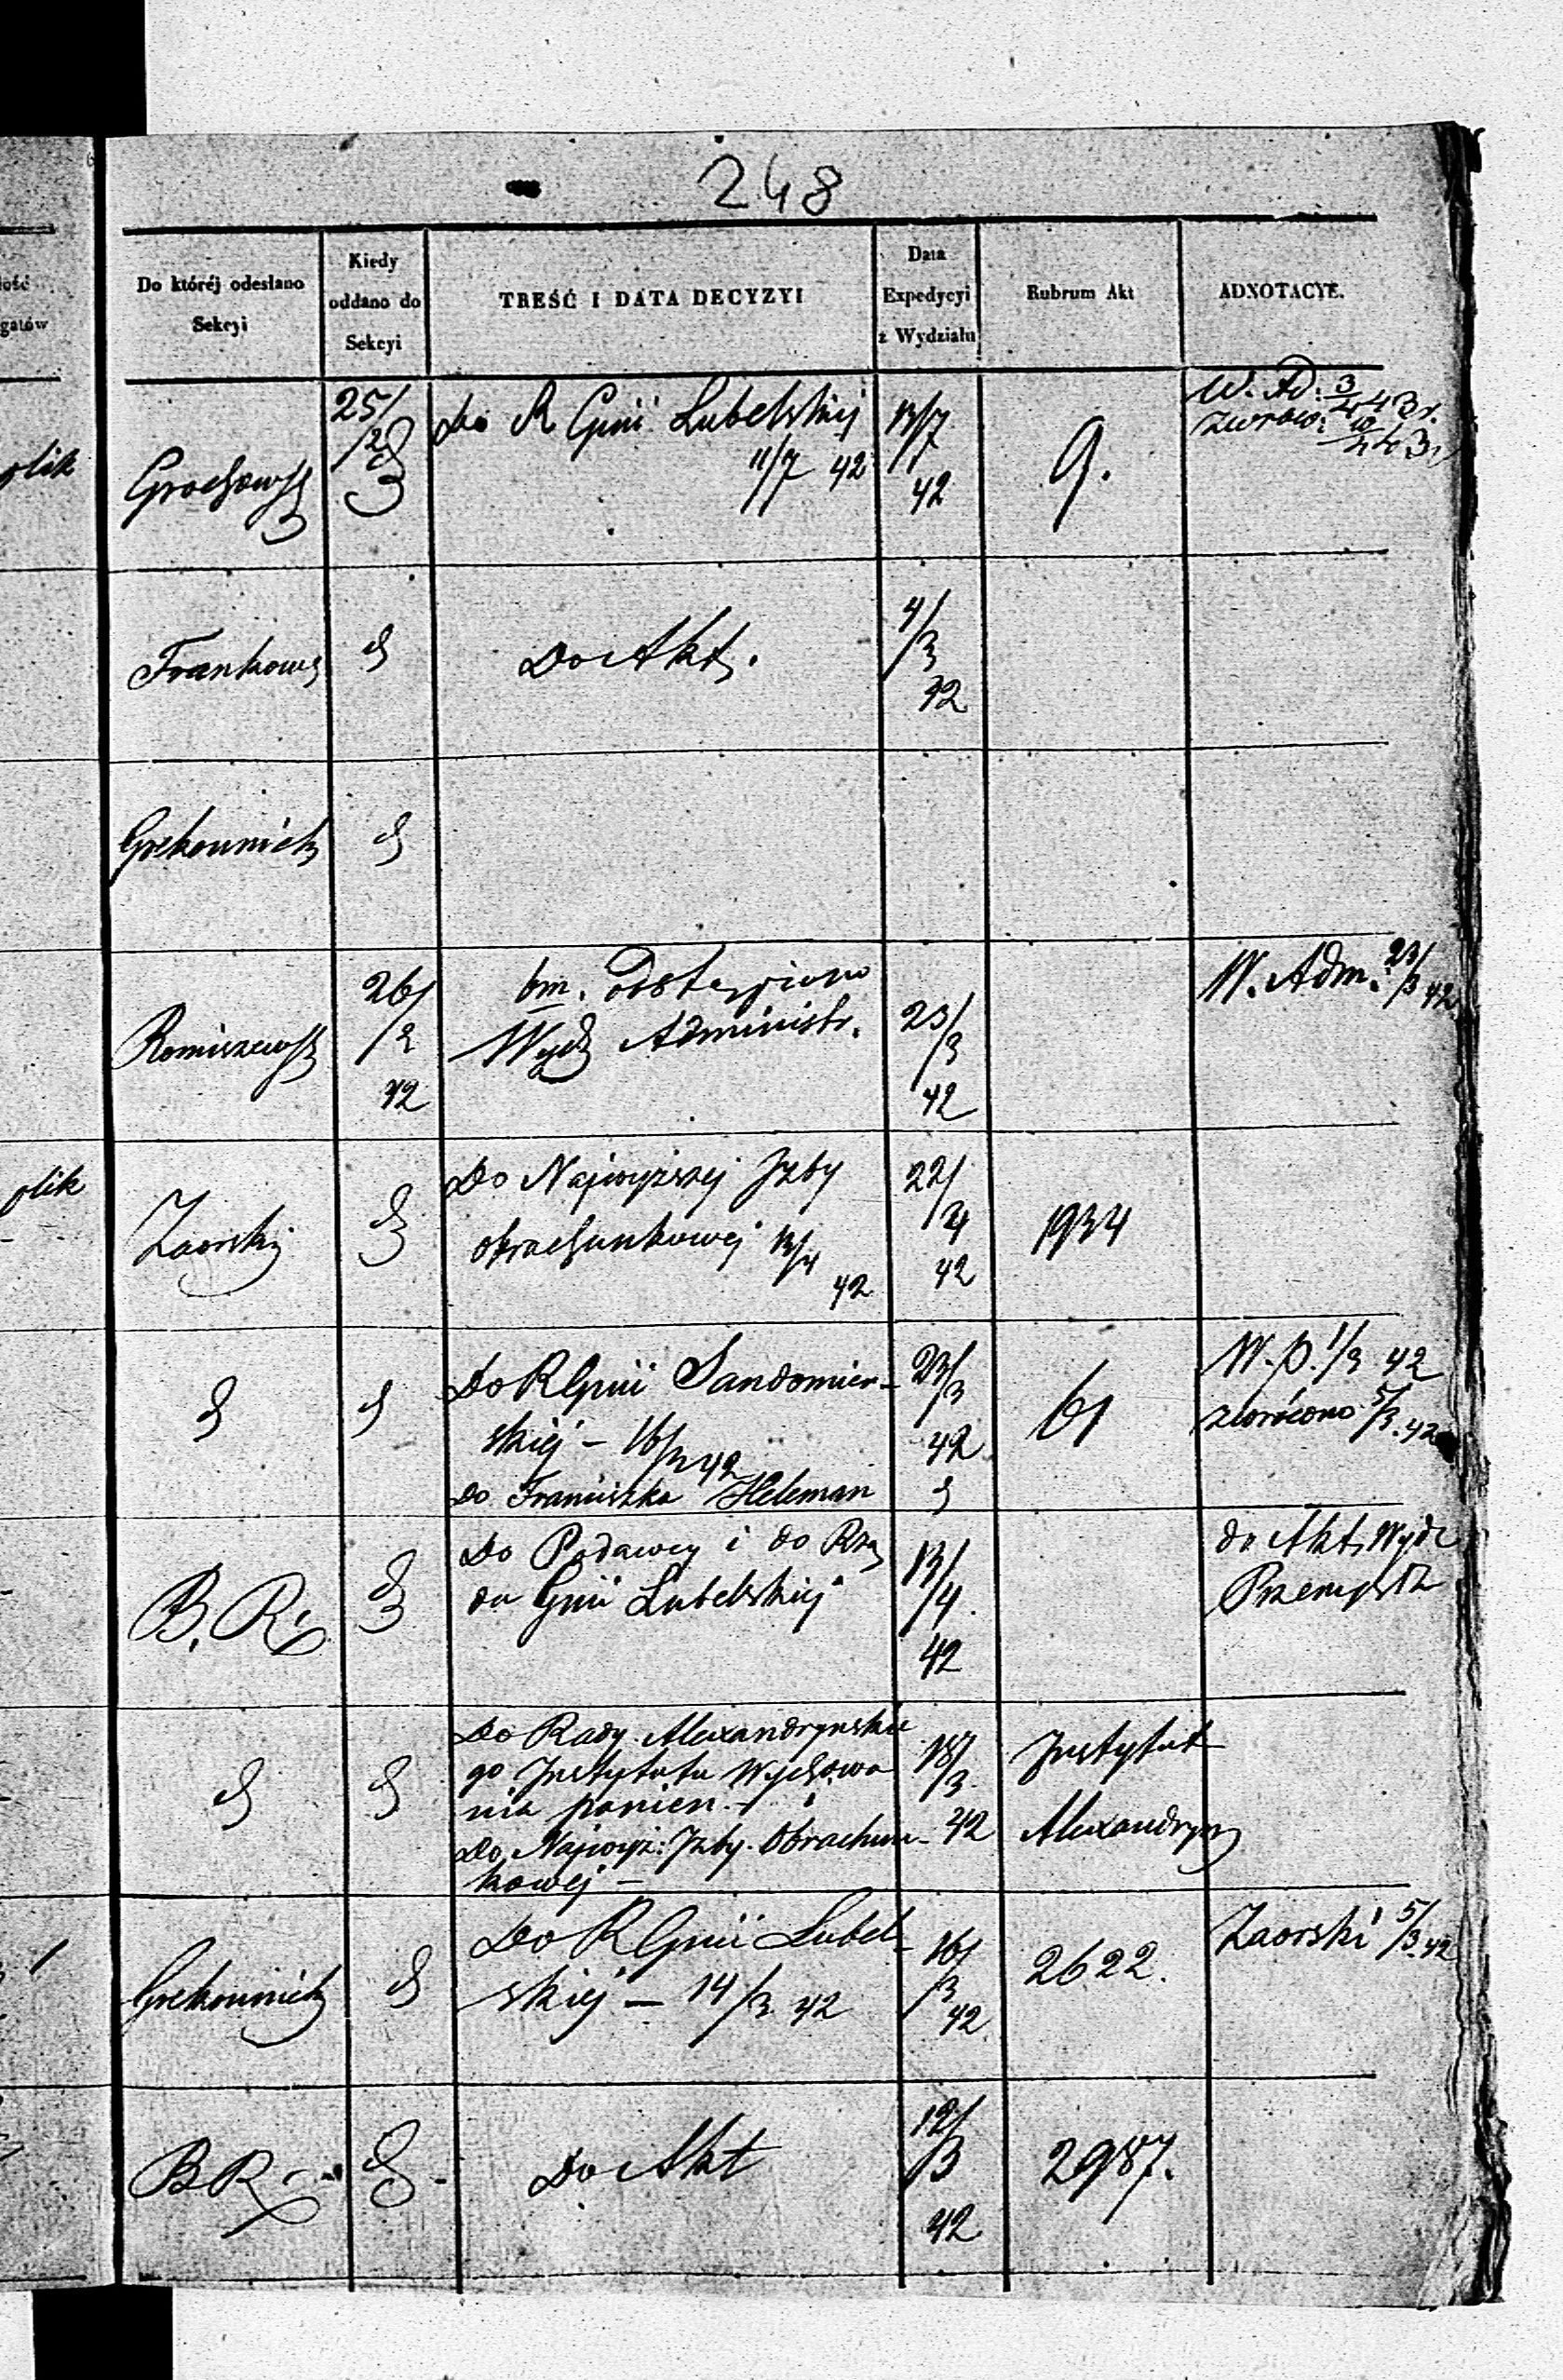 248
Do któréj odesłano
Sekcyi
Kiedy
oddano do
Sekcyi
TREŚĆ I DATA DECYZYI
Data
Expedycyi
z Wydziału
Rubrum Akt
ADNOTACYE.
Grochowsk
25/2
Do R Gnii Lubelskiej
11/7 42
13/7
42
9.
W. AD. 3/4 43 r.
Frankows
Do Akt.
4/3
42
Grekowicz
Romiszewsk
26/2
42
bm. Odstąpiono
Wydz Administr.
23/3
42
W. Adm. 23/3 42
Zaorski
Do Najwyższej Izby
obrachunkowej 13/4
42
22/4
42
1934
Do R Gnii Sandomier-
skiéj – 16/3 42
do Franciszka Heleman
23/3
42
61
W. P. 1/3 42
zwrócono 5/3. 42
B. R.
Do Podawcy i do Rzą
du Gnii Lubelskiej
13/4.
42
do Akt Wydz
Przemysł
Do Rady Alexandryńskie
go Instytutu Wychowa
nia panien. –
Do Najwyż: Izby Obrachun-
kowéj –
18/3.
42
Instytut
Alexandryn
Grekowicz
Do R Gnii Lubel-
skiéj – 14/3 42
16/3
42
2622.
Zaorski 5/3. 42
B R
Do Akt
12/3
42
2987.